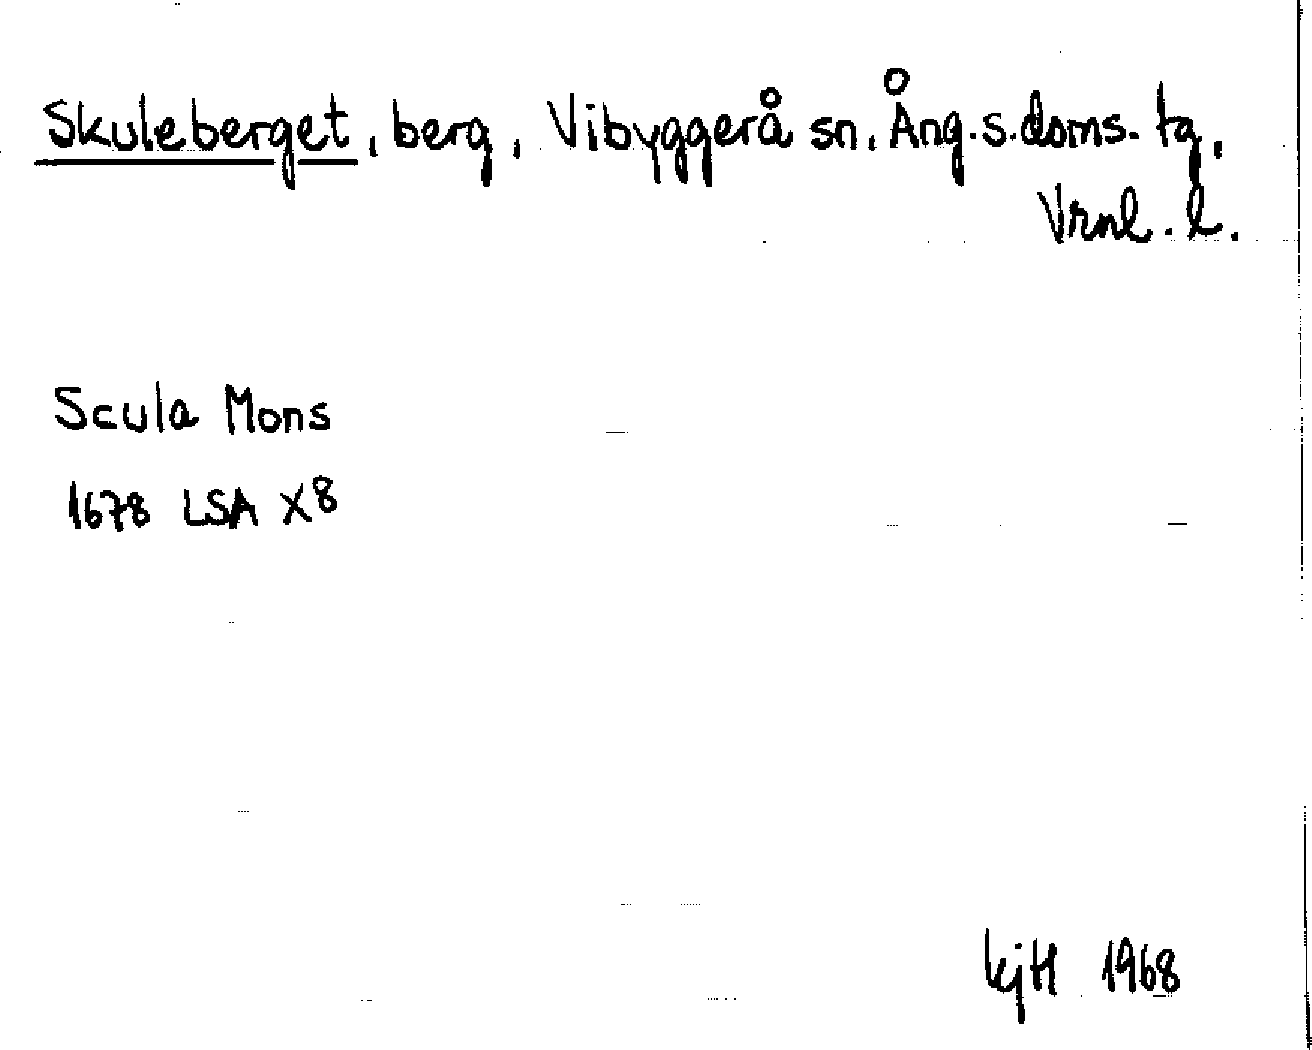 Skuleberget, berg, Vibyggerå sn, Ång.s.doms. tg,
Vrnl. l.
Scula Mons
1678 LSA X8
kjH 1968